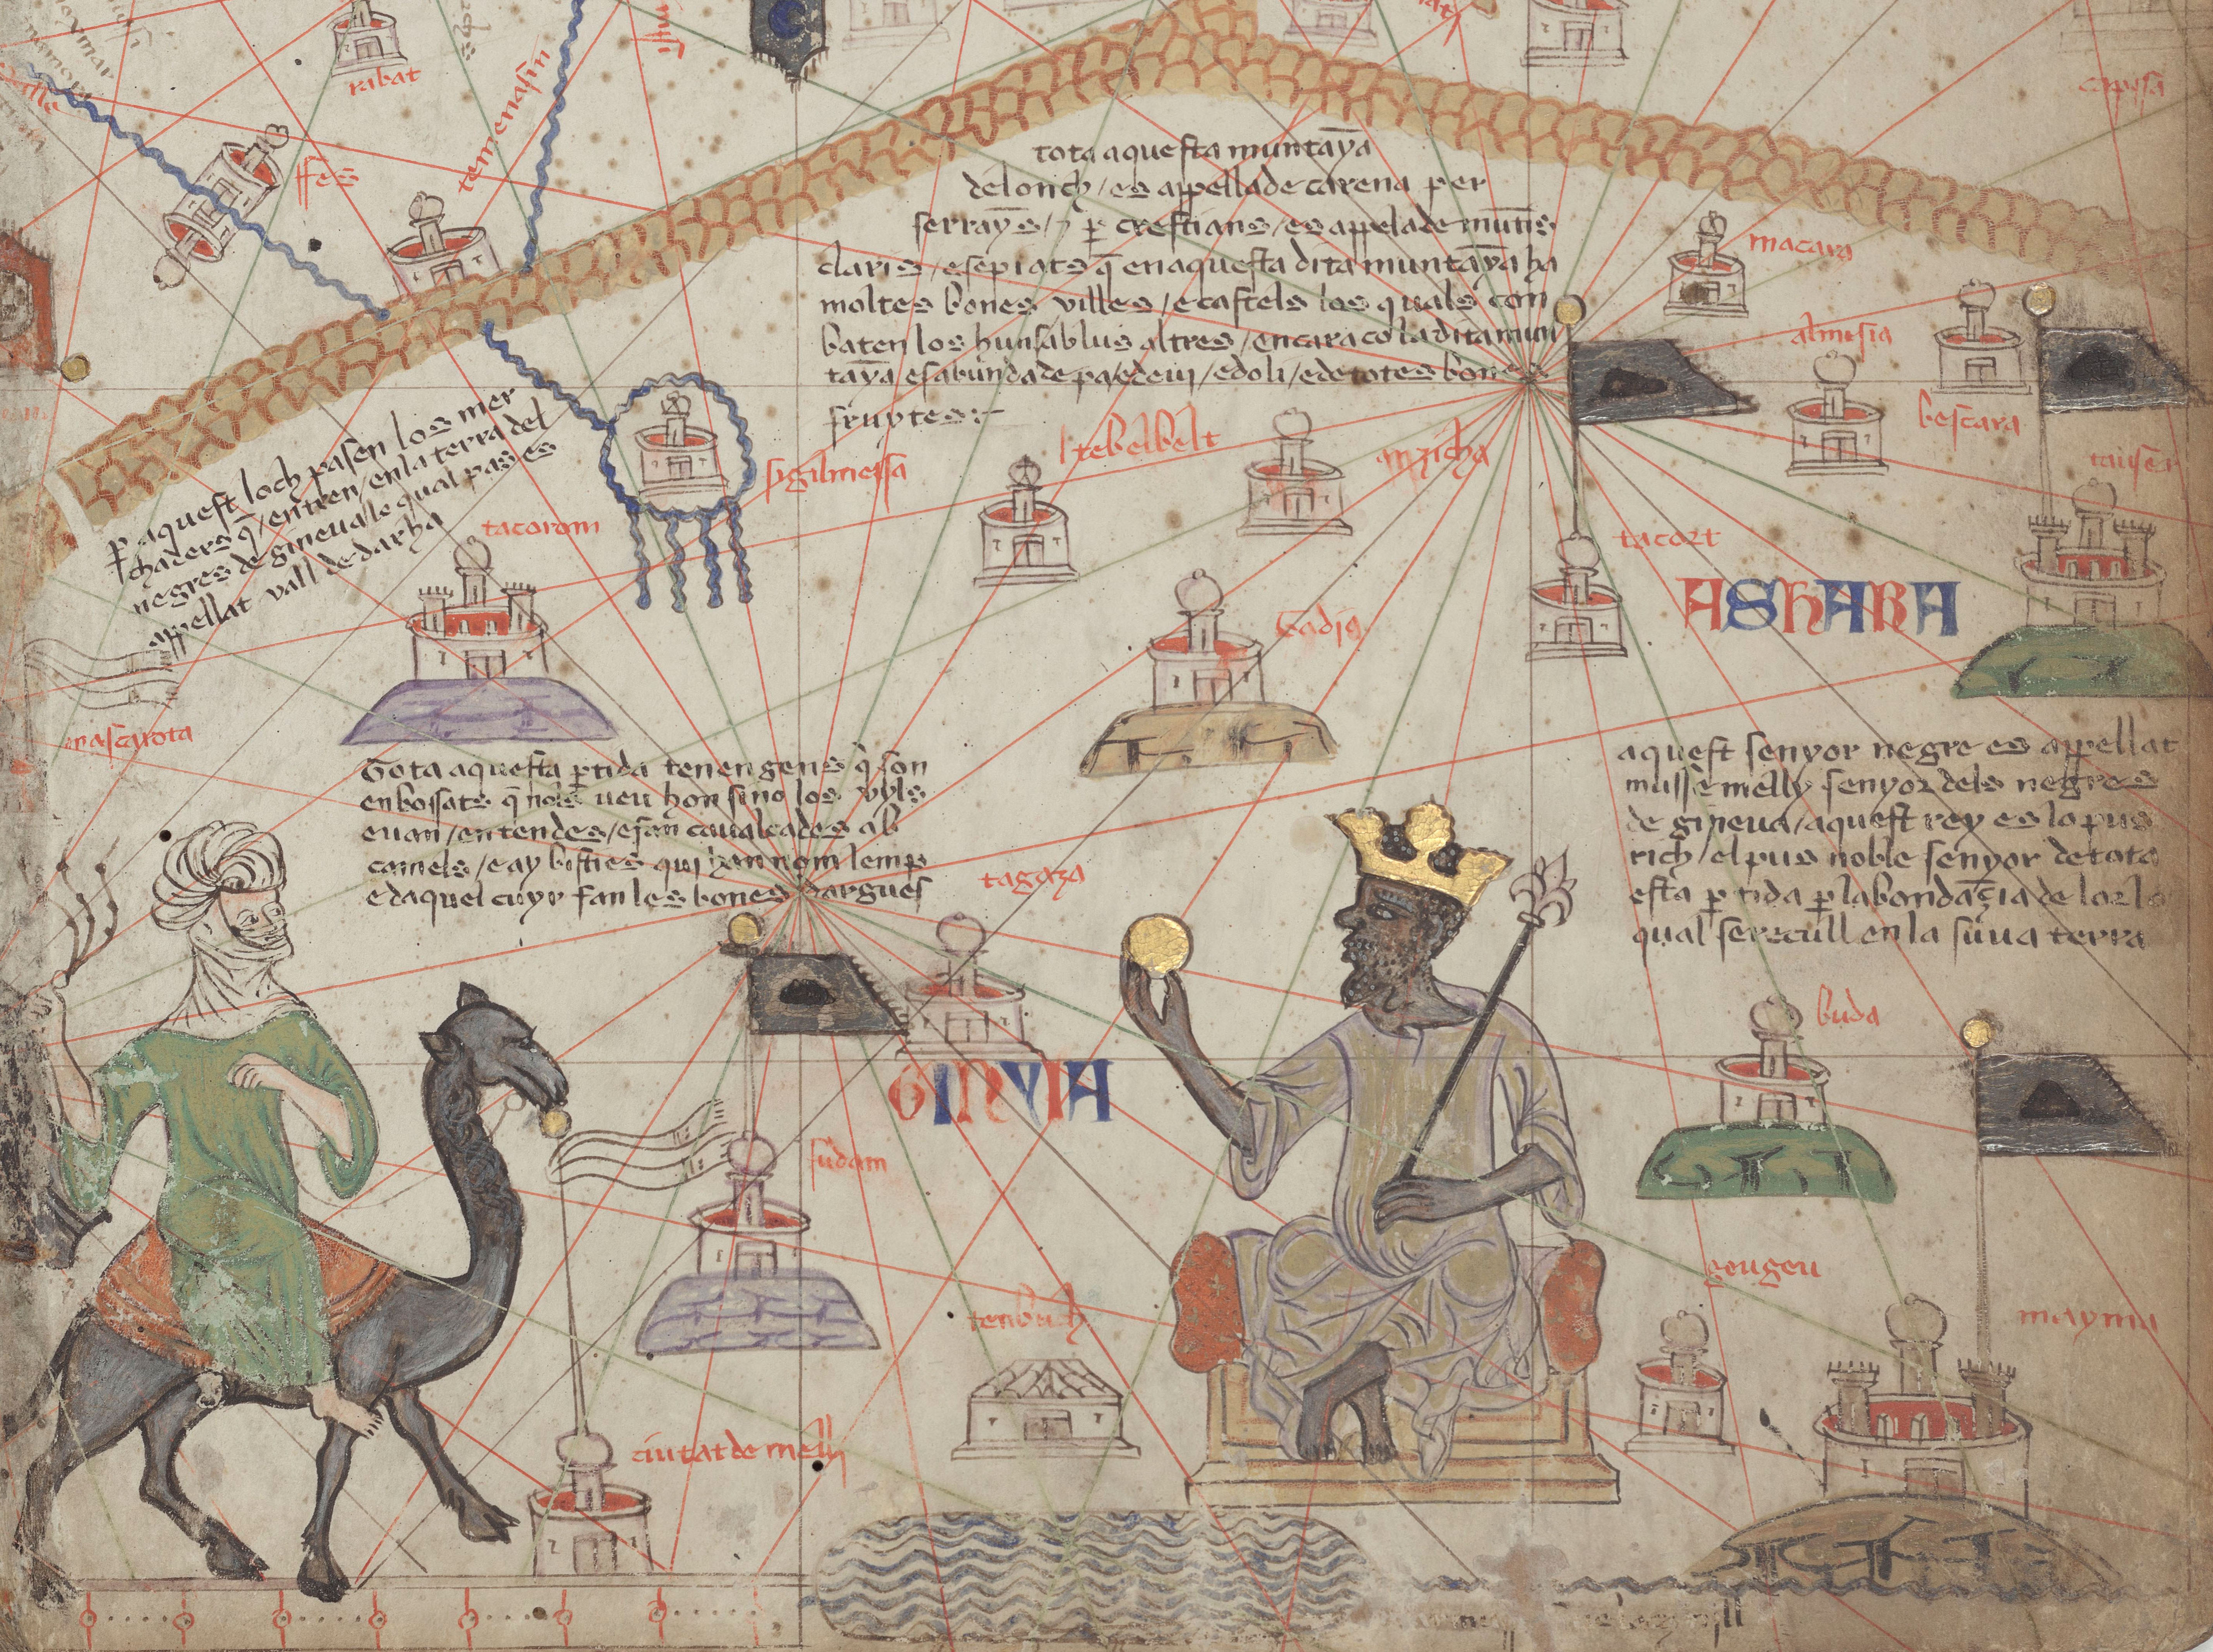 ribat
ffes
temenasin
capisa
tota aquesta muntaya
de lonch / es appellade carena per
serrayns / ⁊ p crestians / es appelade muntis
claris / e sepiats q̄ en aquesta dita muntaya ha
moltes bones villes / e castels los quals con
baten los huns ab lus altres / encara co la dita mun
taya es abundade pa / e de vi / e doli / e de totes bones
fruytes:-
macara
almisia
bescara
p aquest loch pasen los mer
chaders q̄ / entren / en la terra del
negres de gineua lo qual pas es
appellat vall de darha
tacorom
sigilmessa
tebelbelt
anzicha
tacort
ASHARA
tadig
mascarota
Tota aquesta ptida tenen gens q̄ son
enbossats q̄ nols ueu hon sino los uyls
e uan / en tendes / e fan caualcades ab
camels / e ay bisties qui han nom lemp
e daquel cuyr fan les bones dargues
aquest senyor negre es appellat
musse melly senyor dels negres
de gineua / aquest rey es lo pus
rich / el pus noble senyor de tota
esta ptida p labondaçia de lor lo
qual se recull en la suua terra
tagaza
buda
GINYIA
sudam
geugeu
mayma
tenbuch
ciutat de melly